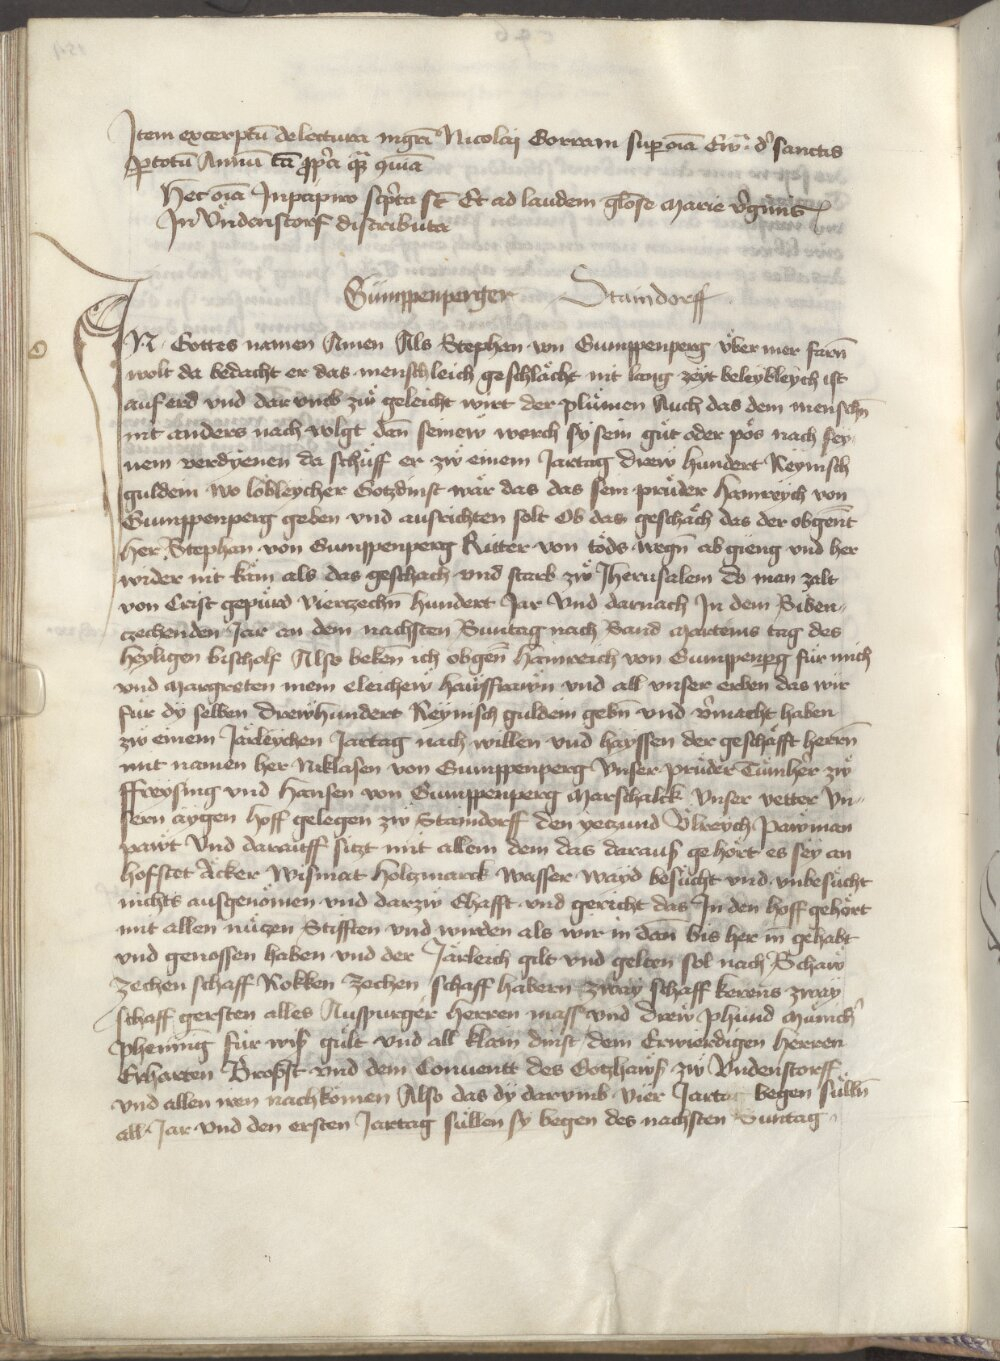 Item excerptū de lectura mgrī Nicolaij Gorram sup oīa Ew̄. d' sanctis
P totū Annū
Hec oīa In papiro scp̄ta st̄ Et ad laudem gl̄ose Marie v'ginis
In Vndenstorf distributa
Gümppenperger Staindorff
IN Gottes namen Amen Als Stephan von Gumppenperg über mer farn̄
wolt da bedacht er das menschleich geschlächt nit lang zeyt beleybleych ist
auf erd vnd dar vmb zw̆ geleicht wirt der plůmen Auch das dem menschn̄
nit anders nach volgt dan̄ seinew werch sy sein gůt oder pös nach sey-
nem verdyenen da schůff er zw̆ einem Jartag drew hundert Reynisch
guldein wo lobleycher Gotzdinst wär das das sein průder Hainreych von
Gumppenperg geben vnd ausrichten solt Ob das geschäch das der obgen̄t
her Stephan von Gumppenperg Ritter von töds wegn̄ ab gieng vnd her
wider nit käm als das geschach vnd starb zw̆ Jherusalem do man zalt
von Crist gepůrd Vierzechn̄ hundert Jar Vnd darnach In dem Siben-
czechenden Jar an dem nachsten Suntag nach Sand Marteins tag des
heyligen bischolf Also beken̄ ich obgen̄ Hainreich von Gumppenpg für mich
vnd Margreten mein eleichew hawsfrawn vnd all vnser erben das wir
für dy selben drewhundert Reynisch guldein gebn̄ vnd v'macht haben
zw̆ einem Järleychen Jartag nach willen vnd hayssen der geschäfft herrn̄
mit namen her Niklasen von Gumppenperg Vnser průder Tůmher zw̆
Freysing vnd Hansen von Gumppenperg Marschalck Vnser vetter Vn-
sern aygen hoff gelegen zw̆ Staindorff den yeczund Vlreych Pawman
pawt Vnd darauff siczt mit allem dem das daraus gehört es sey an
hofstet Äcker Wismat Holtzmarck Wasser wayd besůcht vnd vnbesůcht
nichts ausgenömen vnd darzw̆ Ehafft vnd gericht das In den hoff gehört
mit allen nůczen Stifften vnd wirden als wir in dan̄ bis her in gehabt
vnd genossen haben vnd der Järleich gilt vnd gelten sol nach Schaw
zechen schaff Rokken zechen schaff habern zway schaff kerens zway
schaff gersten alles Auspurger herren mass vnd drew phund Münich'
phening für wis gült vnd all klain dinst dem Erwierdigen herren
Erharten Brobst vnd dem Conuentt des Gotzhaws zw̆ Vndenstorff
vnd allen iren nachkömen Also das dy darvmb vier Jartag begen sülln̄
all Jar Vnd den ersten Jartag süllen sy begen des nachsten Suntag